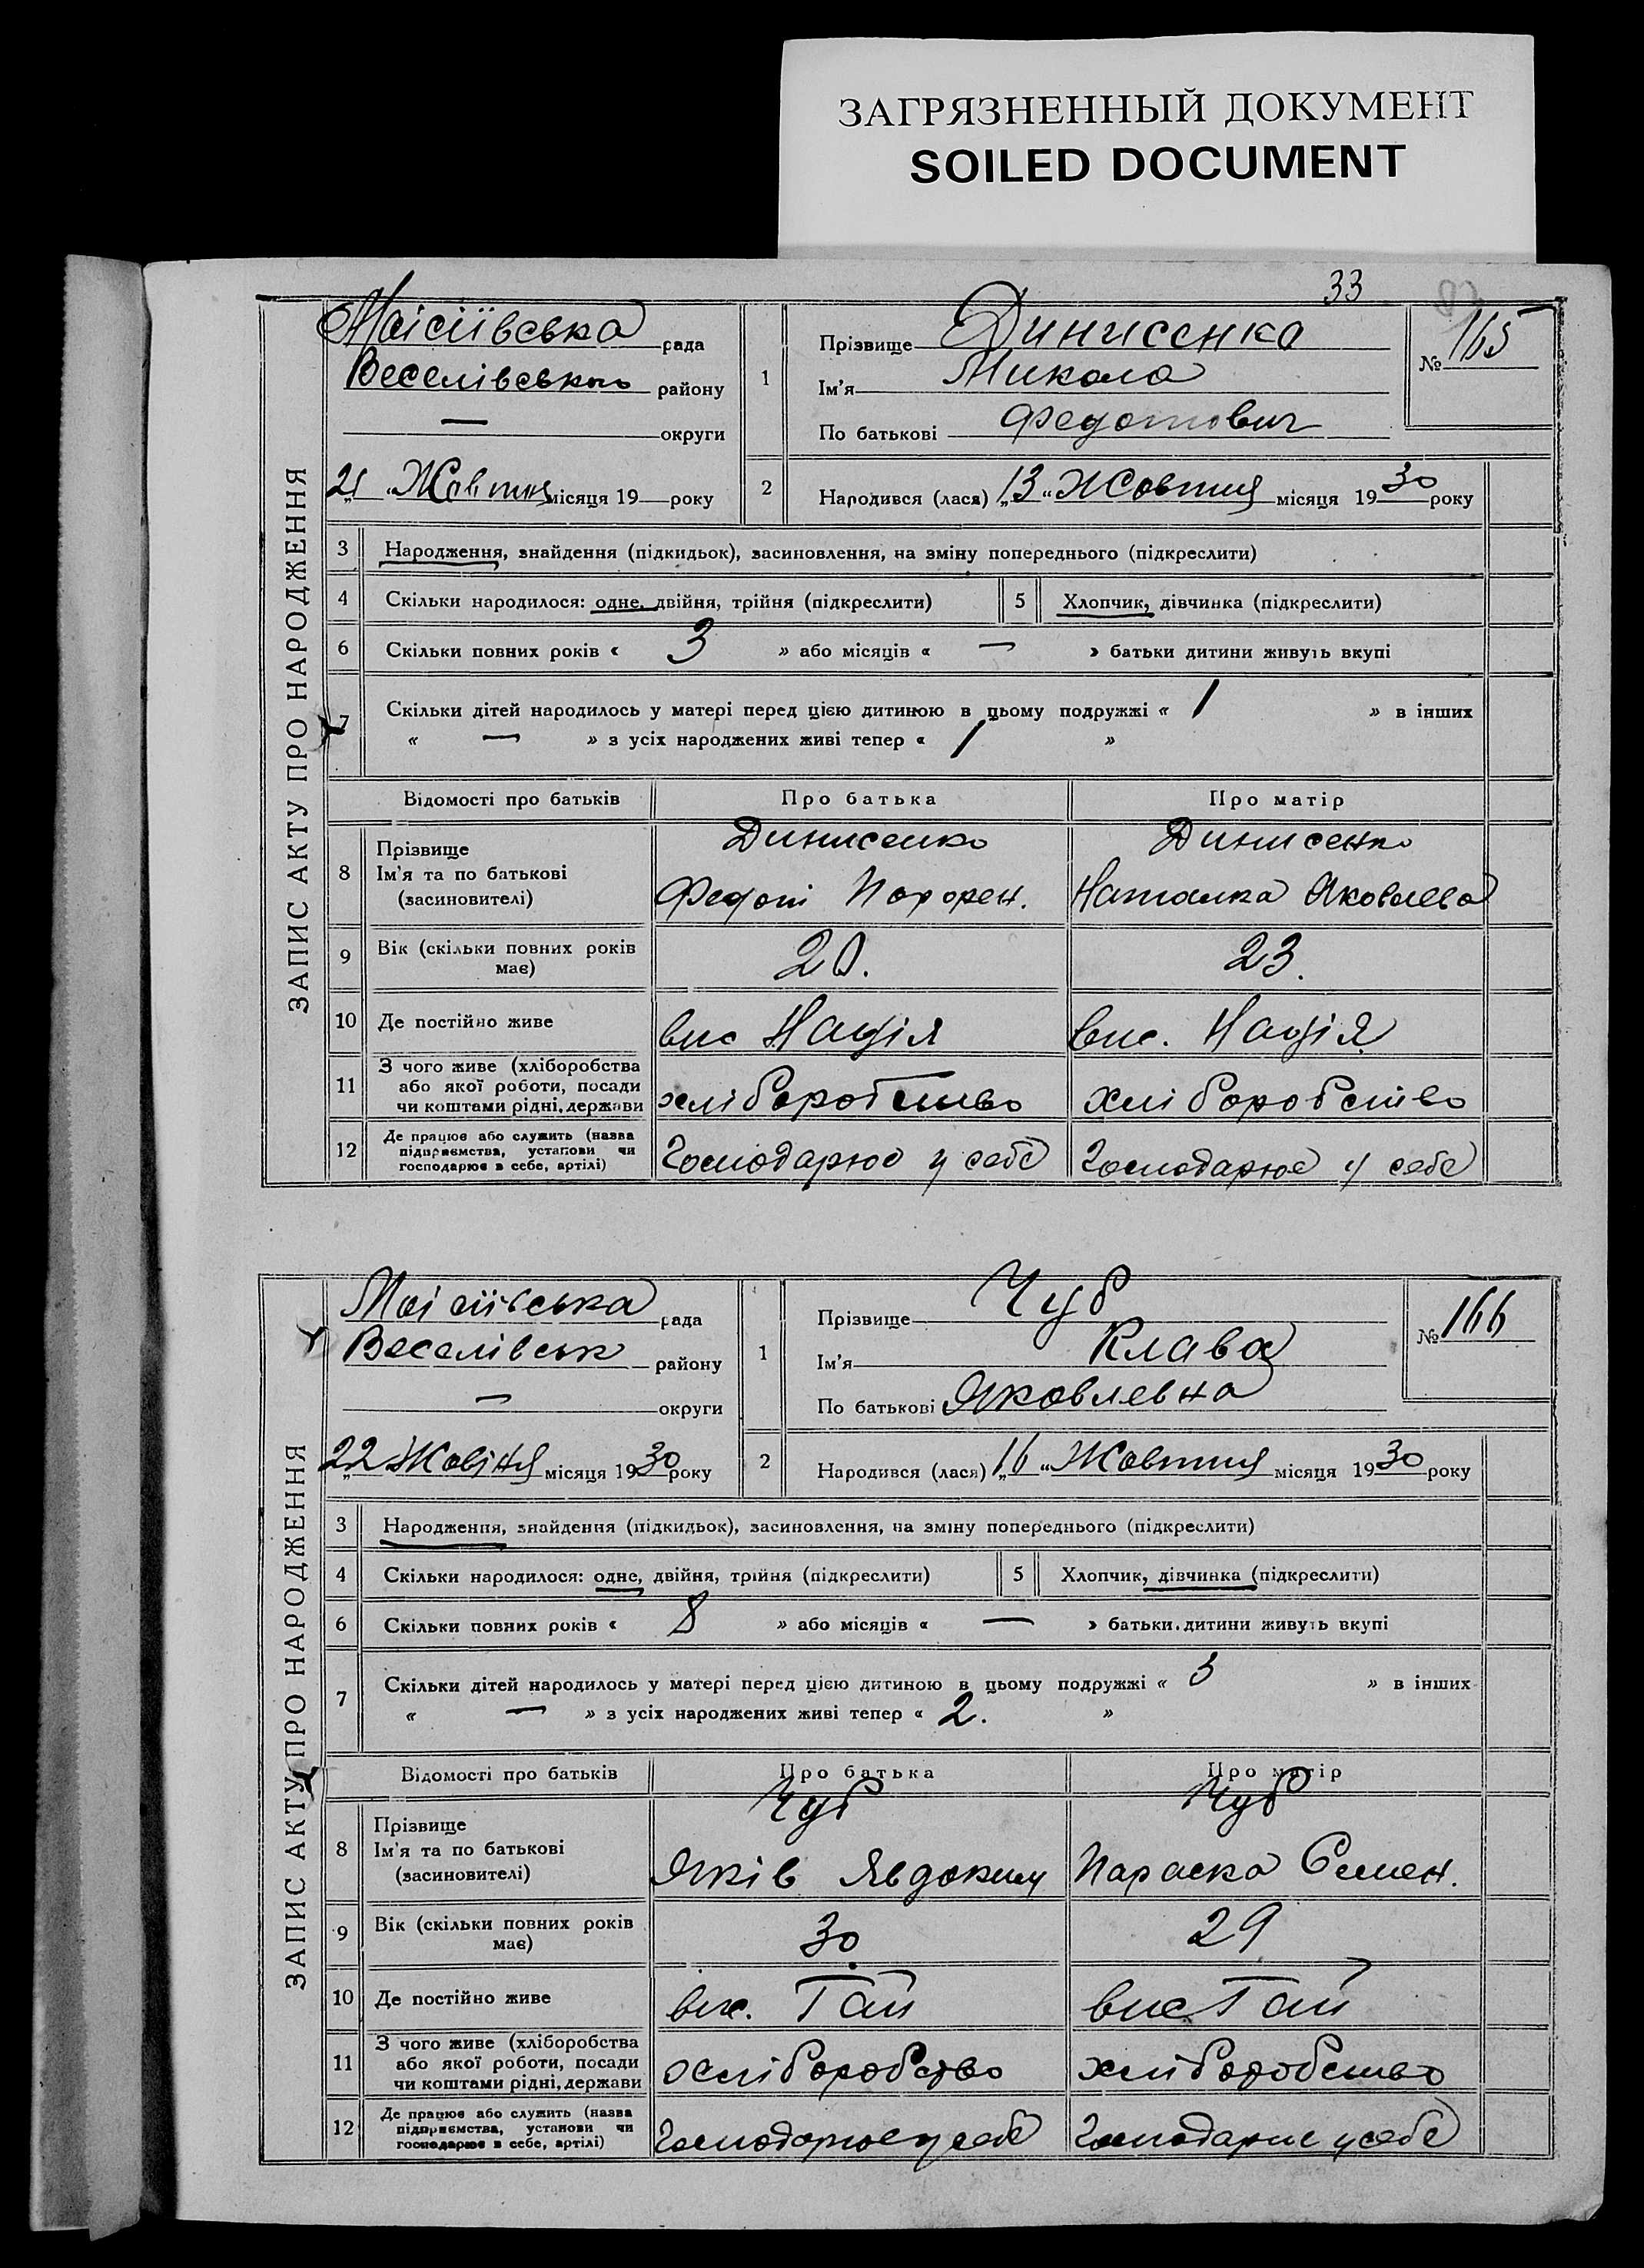 ЗАГРЯЗНЕННЫЙ ДОКУМЕНТ
SOILED DOCUMENT
33
ЗАПИС АКТУ ПРО НАРОДЖЕННЯ
Моісіївська рада
Веселівського району
— округи
„21 „ Жовтня місяця 19 року
1
Прізвище Динисенко
Ім'я Микола
По батькові Федотович
№ 165
2
Народився (лася) „13 „ Жовтня місяця 1930 року
3 Народження, знайдення (підкидьок), засиновлення, на зміну попереднього (підкреслити)
4 Скільки народилося: одне, двійня, трійня (підкреслити) 5 Хлопчик, дівчинка (підкреслити)
6 Скільки повних років « 3 » або місяців « — » батьки дитини живуть вкупі
7 Скільки дітей народилось у матері перед цією дитиною в цьому подружжі « 1 » в інших
« — » з усіх народжених живі тепер « 1 »
Відомості про батьків Про батька Про матір
8 Прізвище Динисенко Динисенко
Ім'я та по батькові
(засиновителі) Федот Наталка Яковлева
9 Вік (скільки повних років має) 20. 23.
10 Де постійно живе вис Надія вис. Надія
11 З чого живе (хліборобства
або якої роботи, посади
чи коштами рідні, держави хліборобство хліборобство
12 Де працює або служить (назва
підприємства, установи чи
господарює в себе, артілі) Господарює у себе Господарює у себе
ЗАПИС АКТУ ПРО НАРОДЖЕННЯ
Моісіївська рада
Веселівськ району
— округи
„22 Жовтня місяця 1930 року
1
Прізвище Чуб
Ім'я Клава
По батькові Яковлевна
№ 166
2
Народився (лася) „16 „ Жовтня місяця 1930 року
3 Народження, знайдення (підкидьок), засиновлення, на зміну попереднього (підкреслити)
4 Скільки народилося: одне, двійня, трійня (підкреслити) 5 Хлопчик, дівчинка (підкреслити)
6 Скільки повних років « 8 » або місяців « — » батьки дитини живуть вкупі
7 Скільки дітей народилось у матері перед цією дитиною в цьому подружжі « 3 » в інших
« — » з усіх народжених живі тепер « 2. »
Відомості про батьків Про батька Про матір
8 Прізвище Чуб Чуб
Ім'я та по батькові
(засиновителі) Яків Явдоким Параска Семен.
9 Вік (скільки повних років має) 30. 29
10 Де постійно живе вис. Гай вис Гай
11 З чого живе (хліборобства
або якої роботи, посади
чи коштами рідні, держави хліборобство хліборобство
12 Де працює або служить (назва
підприємства, установи чи
господарює в себе, артілі) Господарює у себе Господарює у себе